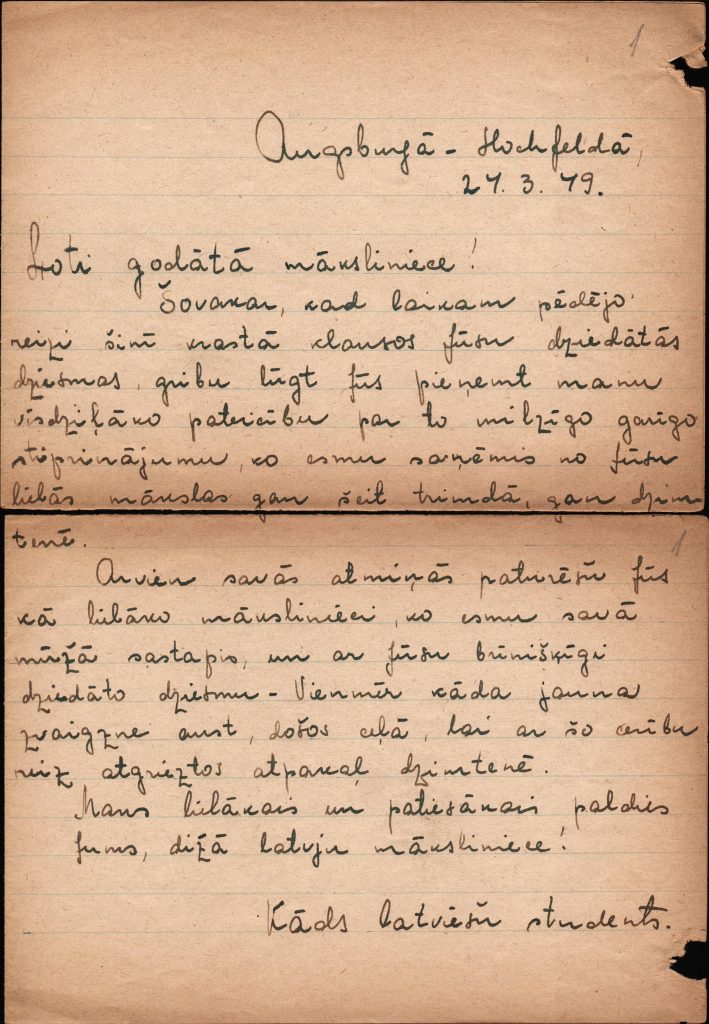 1
Augsburgā - Hochfeldā,
27. 3. 49.
Ļoti godātā māksliniece!
Šovakar, kad laikam pēdējo
reizi šinī krastā klausos Jūsu dziedātās
dziesmas, gribu lūgt Jūs pieņemt manu
visdziļāko pateicību par to milzīgo garīgo
stiprinājumu, ko esmu saņēmis no Jūsu
lielās mākslas gan šeit trimdā, gan dzim-
1
tenē.
Arvien savās atmiņās paturēšu Jūs
kā lielāko mākslinieci, ko esmu savā
mūžā sastapis, un ar Jūsu brīnišķīgi
dziedāto dziesmu - Vienmēr kāda jauna
zvaigzne aust, došos ceļā, lai ar šo cerību
reiz atgrieztos atpakaļ dzimtenē.
Mans lielākais un patiesākais paldies
Jums, dižā latvju māksliniece!
Kāds latviešu students.